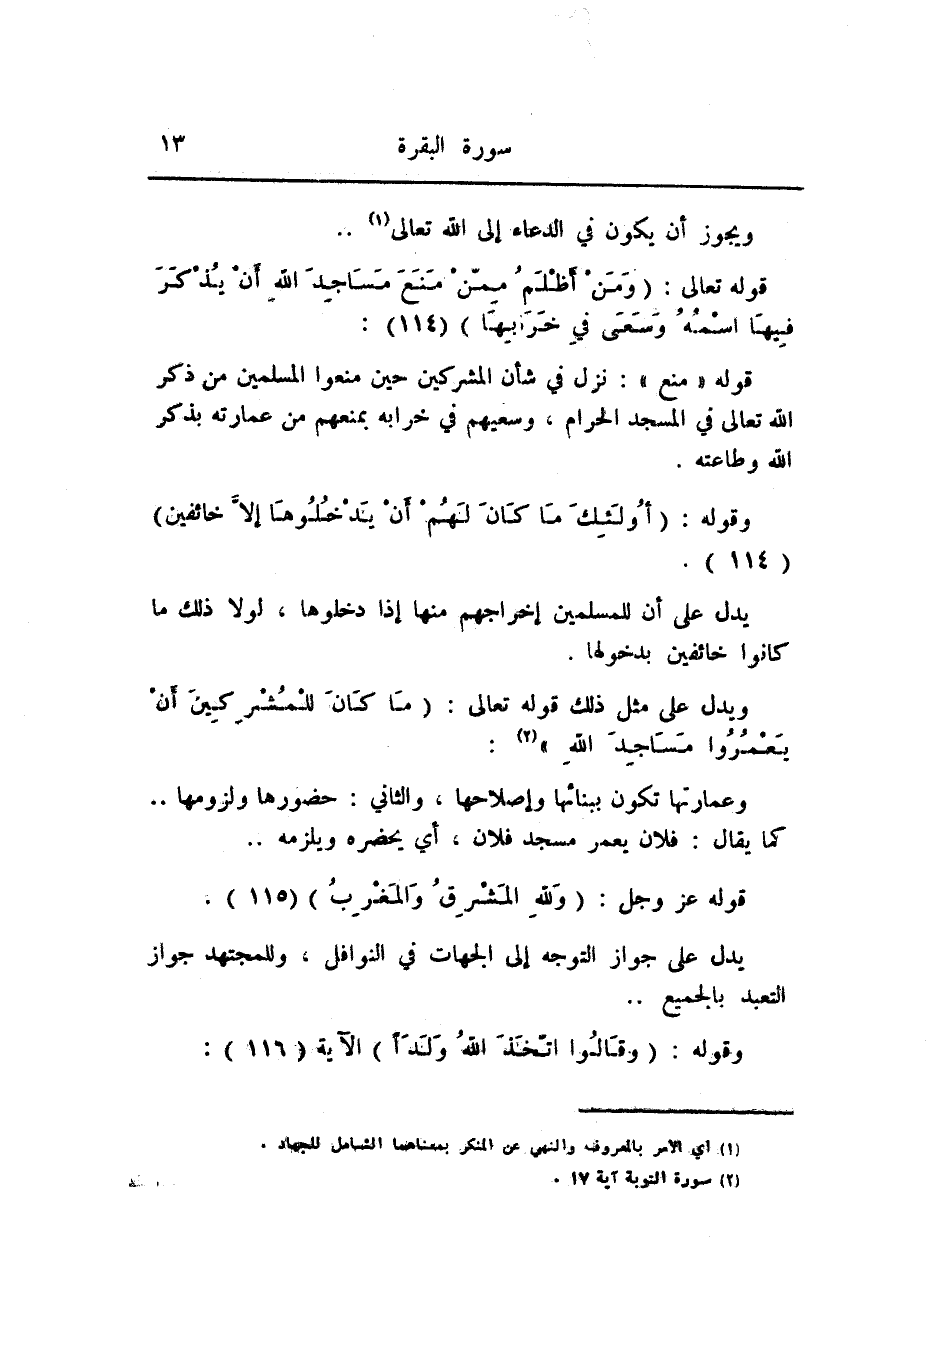 سورة البقرة ١٣
ويجوز أن يكون في الدعاء إلى الله تعالى(١) ..
قوله تعالى : ( وَمَنْ أَظْلَمُ مِمَّنْ مَنَعَ مَسَاجِدَ اللهِ أَنْ يُذْكَرَ
فِيهَا اسْمُهُ وَسَعَى فِي خَرَابِهَا ) (١١٤) :
قوله « منع » : نزل في شأن المشركين حين منعوا المسلمين من ذكر
الله تعالى في المسجد الحرام ، وسعيهم في خرابه بمنعهم من عمارته بذكر
الله وطاعته .
وقوله : ( أُولَئِكَ مَا كَانَ لَهُمْ أَنْ يَدْخُلُوهَا إلاَّ خائفين)
( ١١٤ ) .
يدل على أن للمسلمين إخراجهم منها إذا دخلوها ، لولا ذلك ما
كانوا خائفين بدخولها .
ويدل على مثل ذلك قوله تعالى : ( مَا كَانَ للْمُشْرِكِينَ أَنْ
يَعْمُرُوا مَسَاجِدَ اللهِ »(٢) :
وعمارتها تكون ببنائها وإصلاحها ، والثاني : حضورها ولزومها ..
كما يقال : فلان يعمر مسجد فلان ، أي يحضره ويلزمه ..
قوله عز وجل : ( وَللهِ المَشْرِقُ وَالمَغْرِبُ ) (١١٥ ) .
يدل على جواز التوجه إلى الجهات في النوافل ، وللمجتهد جواز
التعبد بالجميع ..
وقوله : ( وقَالُوا اتَّخَذَ اللهُ وَلَدَاً ) الآية ( ١١٦ ) :
(١) أي الأمر بالمعروف والنهي عن المنكر بمعناهما الشامل للجهاد .
(٢) سورة التوبة آية ١٧ .